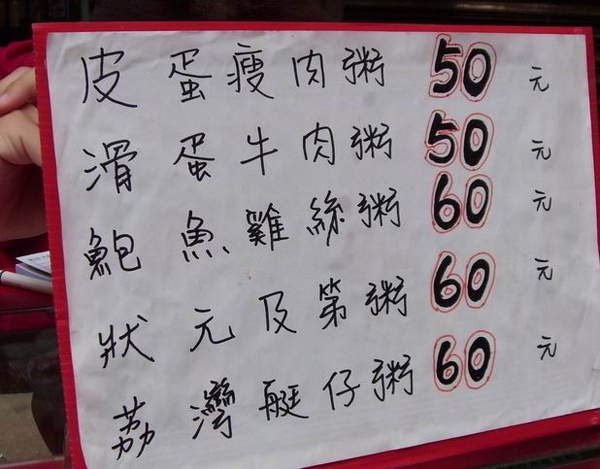 皮蛋瘦肉粥 50元
滑蛋牛肉粥 50元
鮑魚雞絲粥 60元
狀元及第粥 60元
荔灣艇仔粥 60元